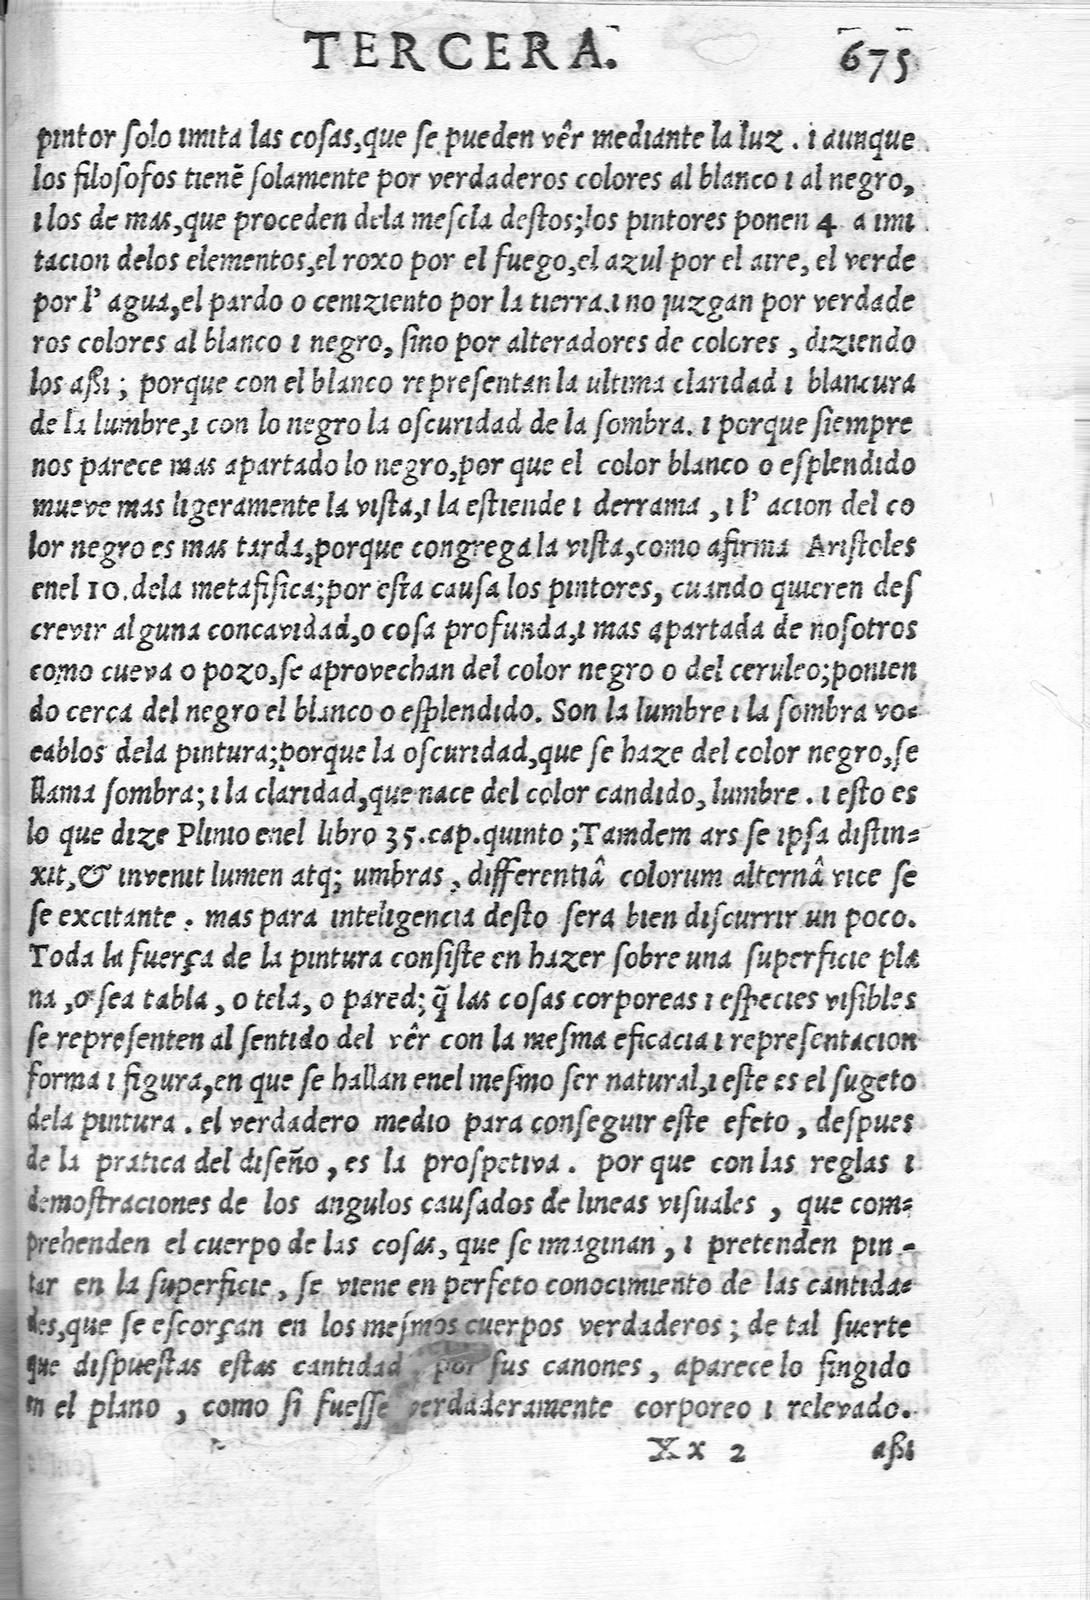 TERCERA. 675
pintor ſolo imita las coſas,que ſe pueden vêr mediante la luz . i aunque
los filoſofos tienẽ ſolamente por verdaderos colores al blanco i al negro,
i los de mas,que proceden dela meſcla deſtos;los pintores ponen 4 a imi
tacion delos elementos,el roxo por el fuego,el azul por el aire, el verde
por l' agua,el pardo o ceniziento por la tierra.i no juzgan por verdade
ros colores al blanco i negro, ſino por alteradores de colores , diziendo
los aſsi ; porque con el blanco repreſentan la ultima claridad i blancura
de la lumbre,i con lo negro la oſcuridad de la ſombra. i porque ſiempre
nos parece mas apartado lo negro,por que el color blanco o eſplendido
mueve mas ligeramente la viſta,i la eſtiende i derrama , i l' acion del co
lor negro es mas tarda,porque congrega la viſta,como afirma Ariſtoles
enel 10.dela metafiſica;por eſta cauſa los pintores, cuando quieren deſ
crevir alguna concavidad,o coſa profunda,i mas apartada de noſotros
como cueva o pozo,ſe aprovechan del color negro o del ceruleo;ponien
do cerca del negro el blanco o eſplendido. Son la lumbre i la ſombra vo-
cablos dela pintura;porque la oſcuridad,que ſe haze del color negro,ſe
llama ſombra; i la claridad,que nace del color candido, lumbre . i eſto es
lo que dize Plinio enel libro 35.cap.quinto ;Tamdem ars ſe ipſa diſtin-
xit,& invenit lumen atq; umbras , differentiâ colorum alternâ vice ſe
ſe excitante . mas para inteligencia deſto ſera bien diſcurrir un poco.
Toda la fuerça de la pintura conſiſte en hazer ſobre una ſuperficie pla
na , o ſea tabla , o tela, o pared; q̃ las coſas corporeas i eſpecies viſibles
ſe repreſenten al ſentido del vêr con la meſma eficacia i repreſentacion
forma i figura,en que ſe hallan enel meſmo ser natural,i eſte es el sugeto
dela pintura . el verdadero medio para conseguir eſte efeto , deſpues
de la pratica del diſeño , es la proſpetiva . por que con las reglas i
demoſtraciones de los angulos cauſados de lineas viſuales , que com-
prehenden el cuerpo de las coſas, que ſe imaginan , i pretenden pin -
tar en la ſuperficie , ſe viene en perfeto conocimiento de las cantida-
des,que ſe eſcorçan en los meſmos cuerpos verdaderos ; de tal ſuerte
que diſpueſtas eſtas cantidad por ſus canones , aparece lo fingido
en el plano , como ſi fueſſe verdaderamente corporeo i relevado.
Xx 2 aſsi